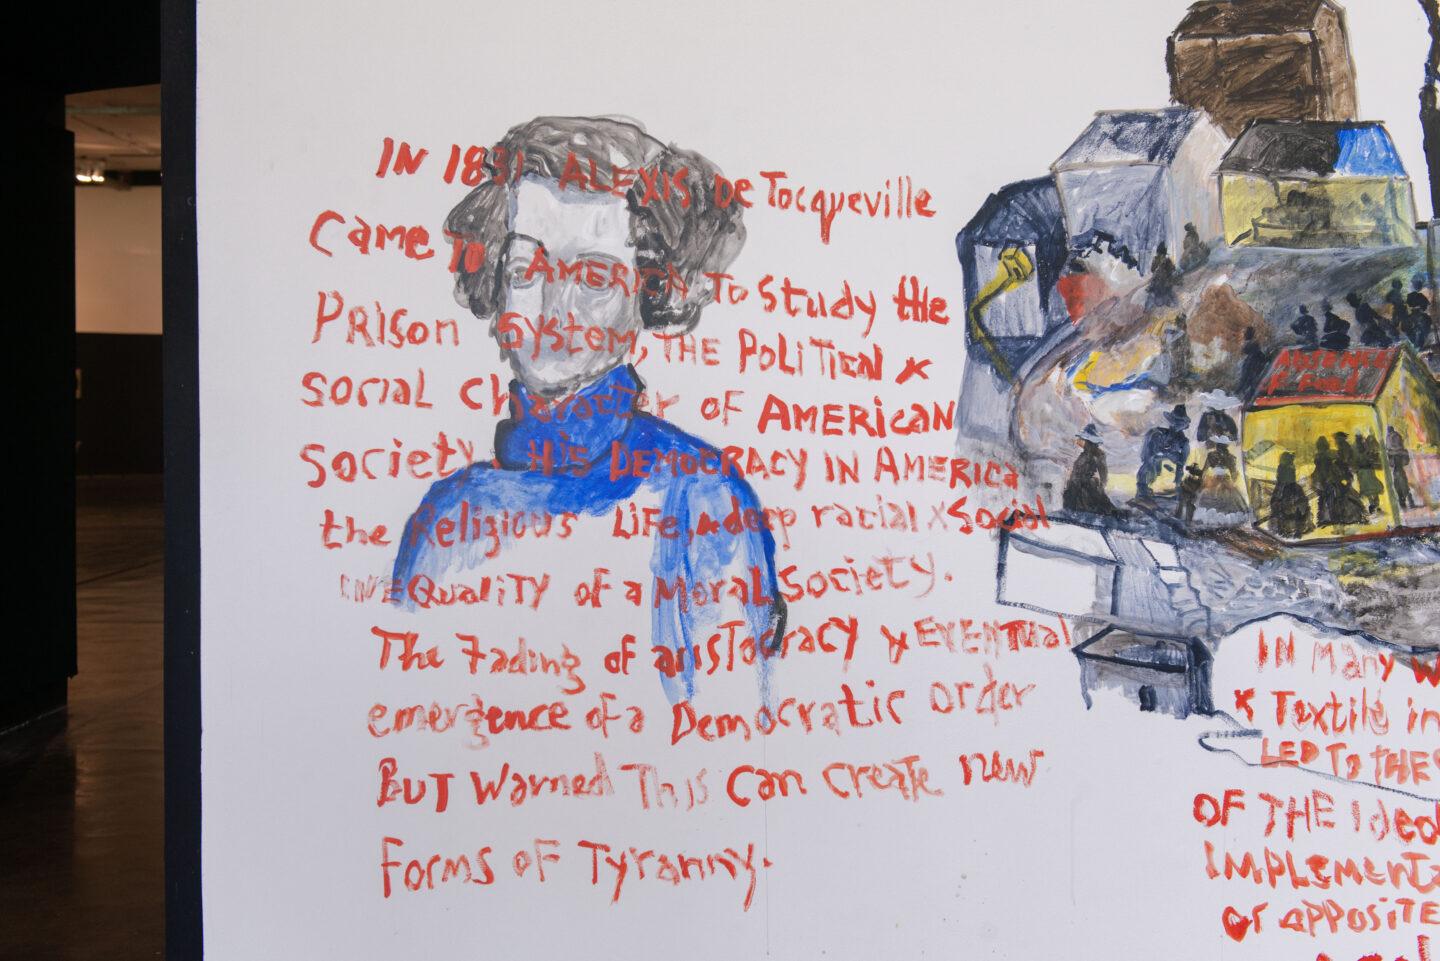 IN 1831 ALEXIS De Tocqueville
Came To AMERICA To Study the
Prison System, THE Political &
social Character OF AMERICAN
Society. His DEMOCRACY IN AMERICA
the Religious Life, & deep racial & Social
INEQuality of a Moral Society.
The Fading of aristocracy & EVENTUal
emergence of a Democratic order
BUT Warned This Can Create new
Forms OF Tyranny.
IN Many W
& Textile in
LED To THE
OF THE Ideol
IMPLementa
or apposite